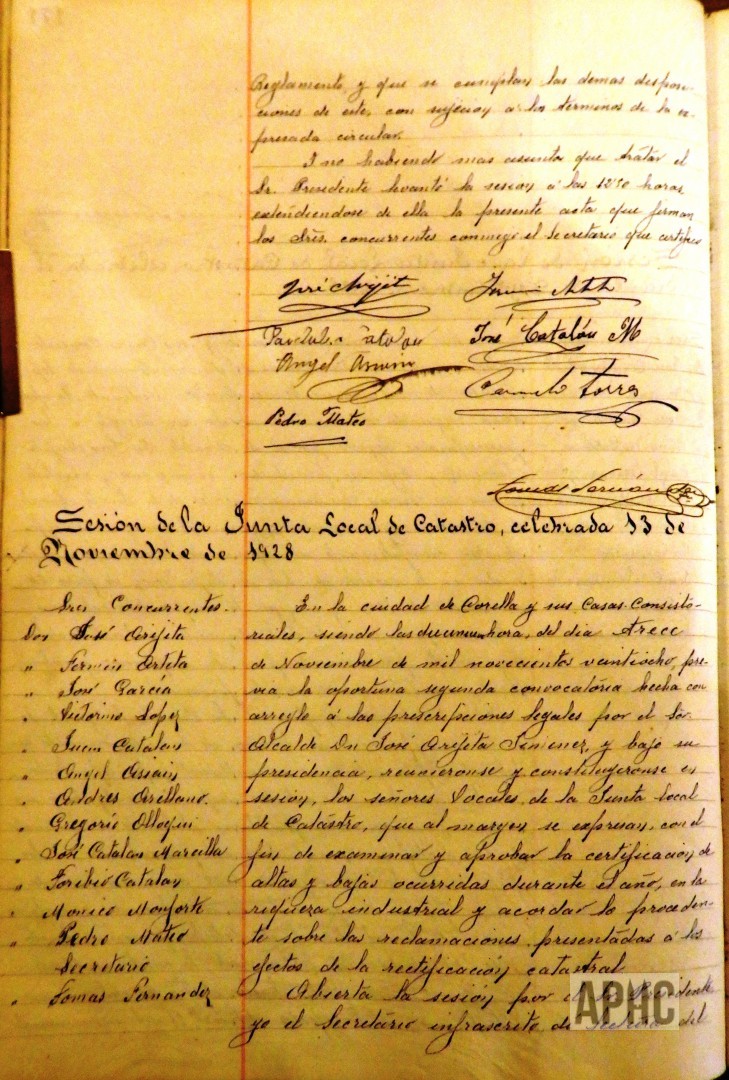 Reglamento y que se cumplan las demas disposi-
ciones de este, con sujecion a los terminos de la ex-
presada circular.
I no habiendo mas asunto que tratar el
Sr. Presidente levantó la sesion á las horas
extendiendose de ella la presente acta que firman
los Sres. concurrentes conmigo el Secretario que certifico
José Catalán M
Angel
Carmelo Torres
Pedro Mateo
Tomás Fernández
Sesión de la Junta Local de Catastro, celebrada 13 de
Noviembre de 1928
Sres Concurrentes.
Don José Arijita
" Fermin Arteta
" José García
" Victorino Lopez
" Juan Catalan
" Angel Asiain
" Andres Arellano.
" Gregorio Olloqui
" José Catalan Marcilla
" Toribio Catalan
" Monico Monforte
" Pedro Mateo
Secretario
" Tomas Fernandez
En la ciudad de Corella y sus Casas Consisto-
riales, siendo las hora, del dia trece
de Noviembre de mil novecientos veintiocho, pre-
via la oportuna segunda convocatoria hecha con
arreglo á las prescripciones legales por el Sr.
Alcalde Dn José Arijita Jimenez, y bajo su
presidencia, reunieronse y constituyeronse en
sesion, los señores Vocales de la Junta Local
de Catástro, que al margen se expresan, con el
fin de examinar y aprobar la certificacion de
altas y bajas ocurridas durante el año, en la
riqueza industrial y acordar lo proceden-
te sobre las reclamaciones presentadas á los
efectos de la rectificacion catastral
Abierta la sesion por el Sr. Presidente
yo el Secretario infrascrito di lectura del
APHC